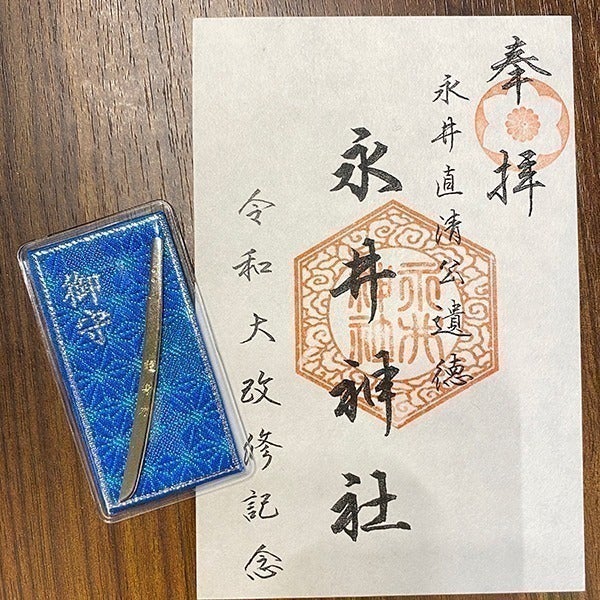 奉拝
永井直清公遺徳
永井神社
令和大改修記念
永井
神社
御守